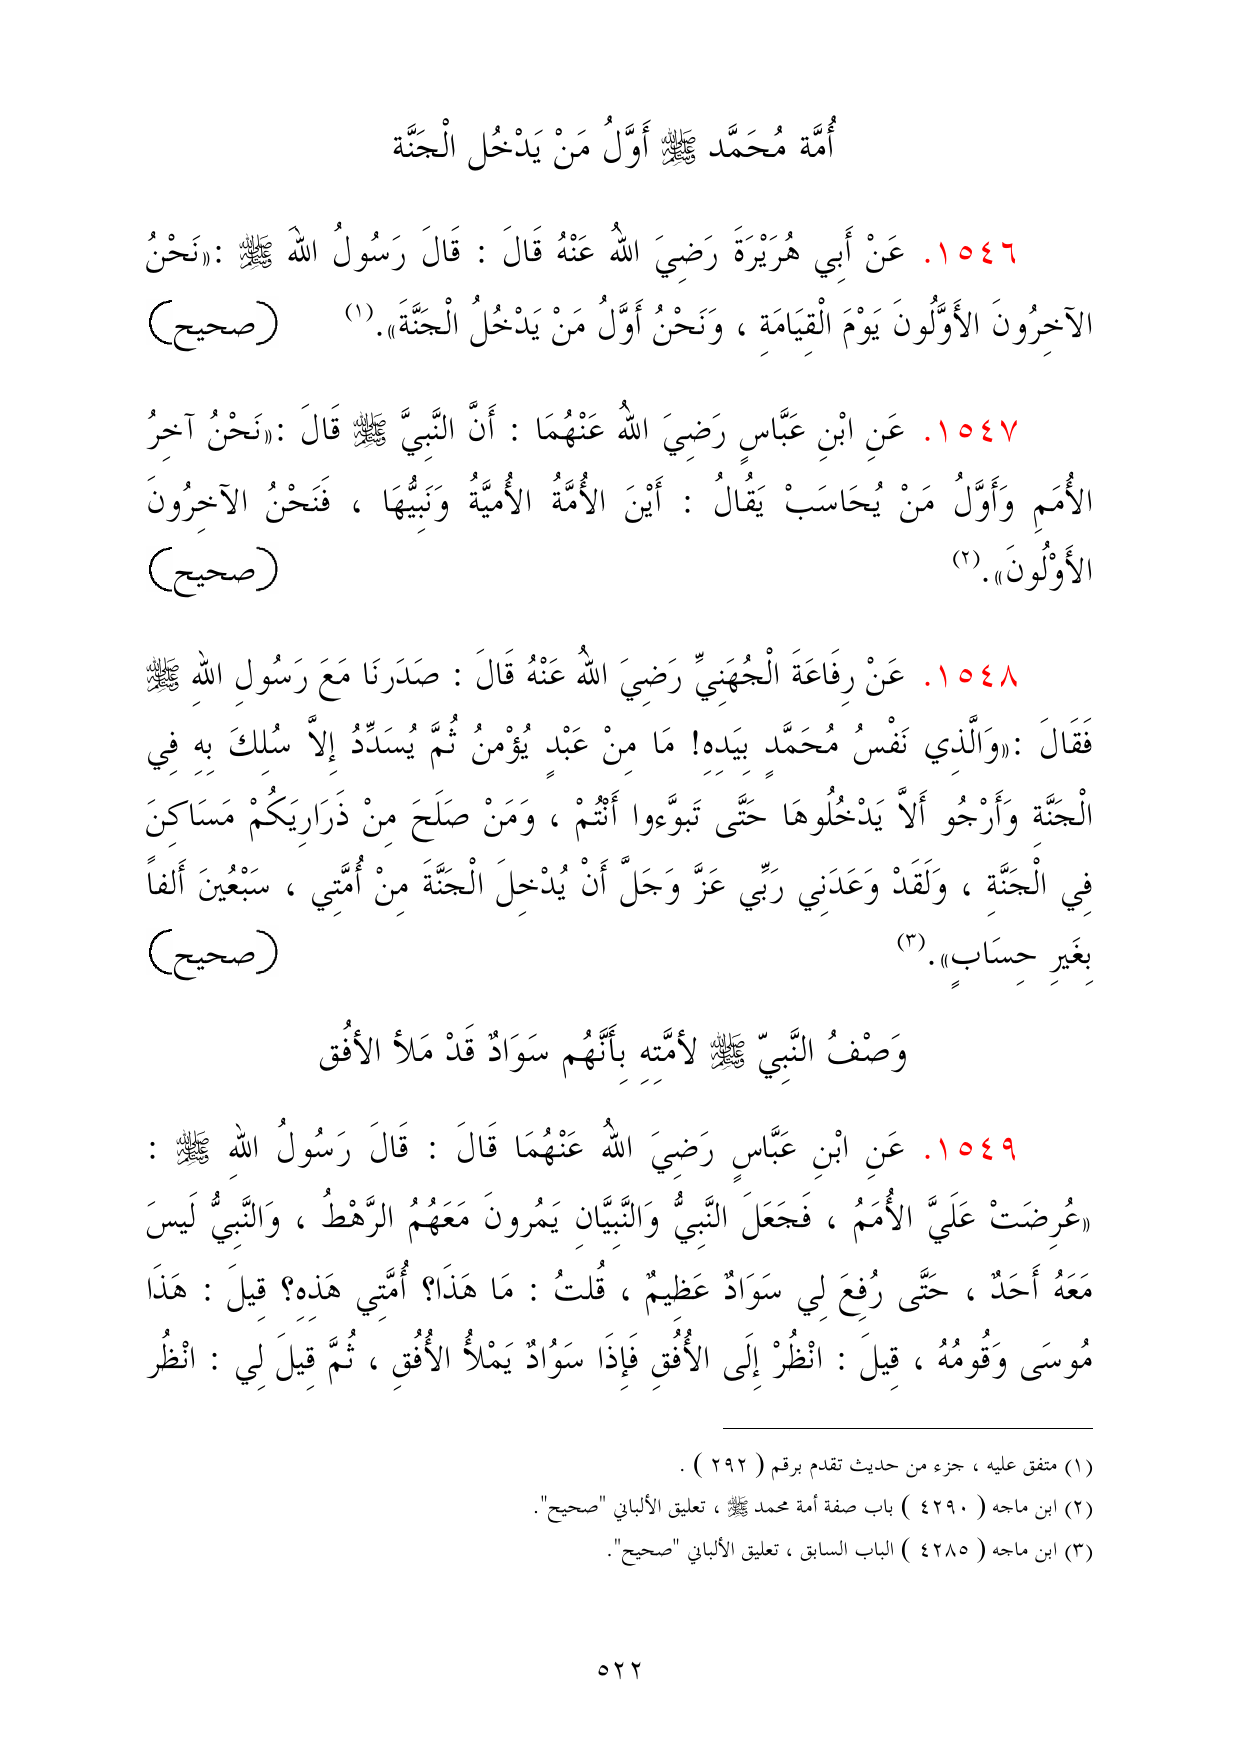 أُمَّة مُحَمَّد ﷺ أَوَّلُ مَنْ يَدْخُل الْجَنَّة
١٥٤٦. عَنْ أَبِي هُرَيْرَةَ رَضِيَ اللهُ عَنْهُ قَالَ : قَالَ رَسُولُ اللهَ ﷺ :«نَحْنُ
الآخِرُونَ الأَوَّلُونَ يَوْمَ الْقِيَامَةِ ، وَنَحْنُ أَوَّلُ مَنْ يَدْخُلُ الْجَنَّةَ».(١) (صحيح)
١٥٤٧. عَنِ ابْنِ عَبَّاسٍ رَضِيَ اللهُ عَنْهُمَا : أَنَّ النَّبِيَّ ﷺ قَالَ :«نَحْنُ آخرُ
الأُمَمِ وَأَوَّلُ مَنْ يُحَاسَبْ يَقُالُ : أَيْنَ الأُمَّةُ الأُميَّةُ وَنَبِيُّهَا ، فَنَحْنُ الآخِرُونَ
الأَوْلُونَ».(٢) (صحيح)
١٥٤٨. عَنْ رِفَاعَةَ الْجُهَنِيِّ رَضِيَ اللهُ عَنْهُ قَالَ : صَدَرنَا مَعَ رَسُولِ اللهِ ﷺ
فَقَالَ :«وَالَّذِي نَفْسُ مُحَمَّدٍ بِيَدِهِ! مَا مِنْ عَبْدٍ يُؤْمنُ ثُمَّ يُسَدِّدُ إِلاَّ سُلِكَ بِهِ فِي
الْجَنَّةِ وَأَرْجُو أَلاَّ يَدْخُلُوهَا حَتَّى تَبوَّءوا أَنْتُمْ ، وَمَنْ صَلَحَ مِنْ ذَرَارِيَكُمْ مَسَاكنَ
فِي الْجَنَّةِ ، وَلَقَدْ وَعَدَنِي رَبِّي عَزَّ وَجَلَّ أَنْ يُدْخِلَ الْجَنَّةَ مِنْ أُمَّتِي ، سَبْعُينَ أَلفاً
بِغَيرِ حِسَابٍ».(٣) (صحيح)
وَصْفُ النَّبِيّ ﷺ لأمَّتِهِ بِأَنَّهُم سَوَادٌ قَدْ مَلأ الأفُق
١٥٤٩. عَنِ ابْنِ عَبَّاسٍ رَضِيَ اللهُ عَنْهُمَا قَالَ : قَالَ رَسُولُ اللهِ ﷺ :
«عُرِضَتْ عَلَيَّ الأُمَمُ ، فَجَعَلَ النَّبِيُّ وَالنَّبِيَّانِ يَمُرونَ مَعَهُمُ الرَّهْطُ ، وَالنَّبِيُّ لَيسَ
مَعَهُ أَحَدٌ ، حَتَّى رُفِعَ لِي سَوَادٌ عَظِيمٌ ، قُلتُ : مَا هَذَا؟ أُمَّتِي هَذِهِ؟ قِيلَ : هَذَا
مُوسَى وَقُومُهُ ، قِيلَ : انْظُرْ إِلَى الأُفُقِ فَإِذَا سَوُادٌ يَمْلأُ الأُفُقِ ، ثُمَّ قِيلَ لِي : انْظُر
(١) متفق عليه ، جزء من حديث تقدم برقم ( ٢٩٢ ) .
(٢) ابن ماجه ( ٤٢٩٠ ) باب صفة أمة محمد ﷺ ، تعليق الألباني "صحيح".
(٣) ابن ماجه ( ٤٢٨٥ ) الباب السابق ، تعليق الألباني "صحيح".
٥٢٢